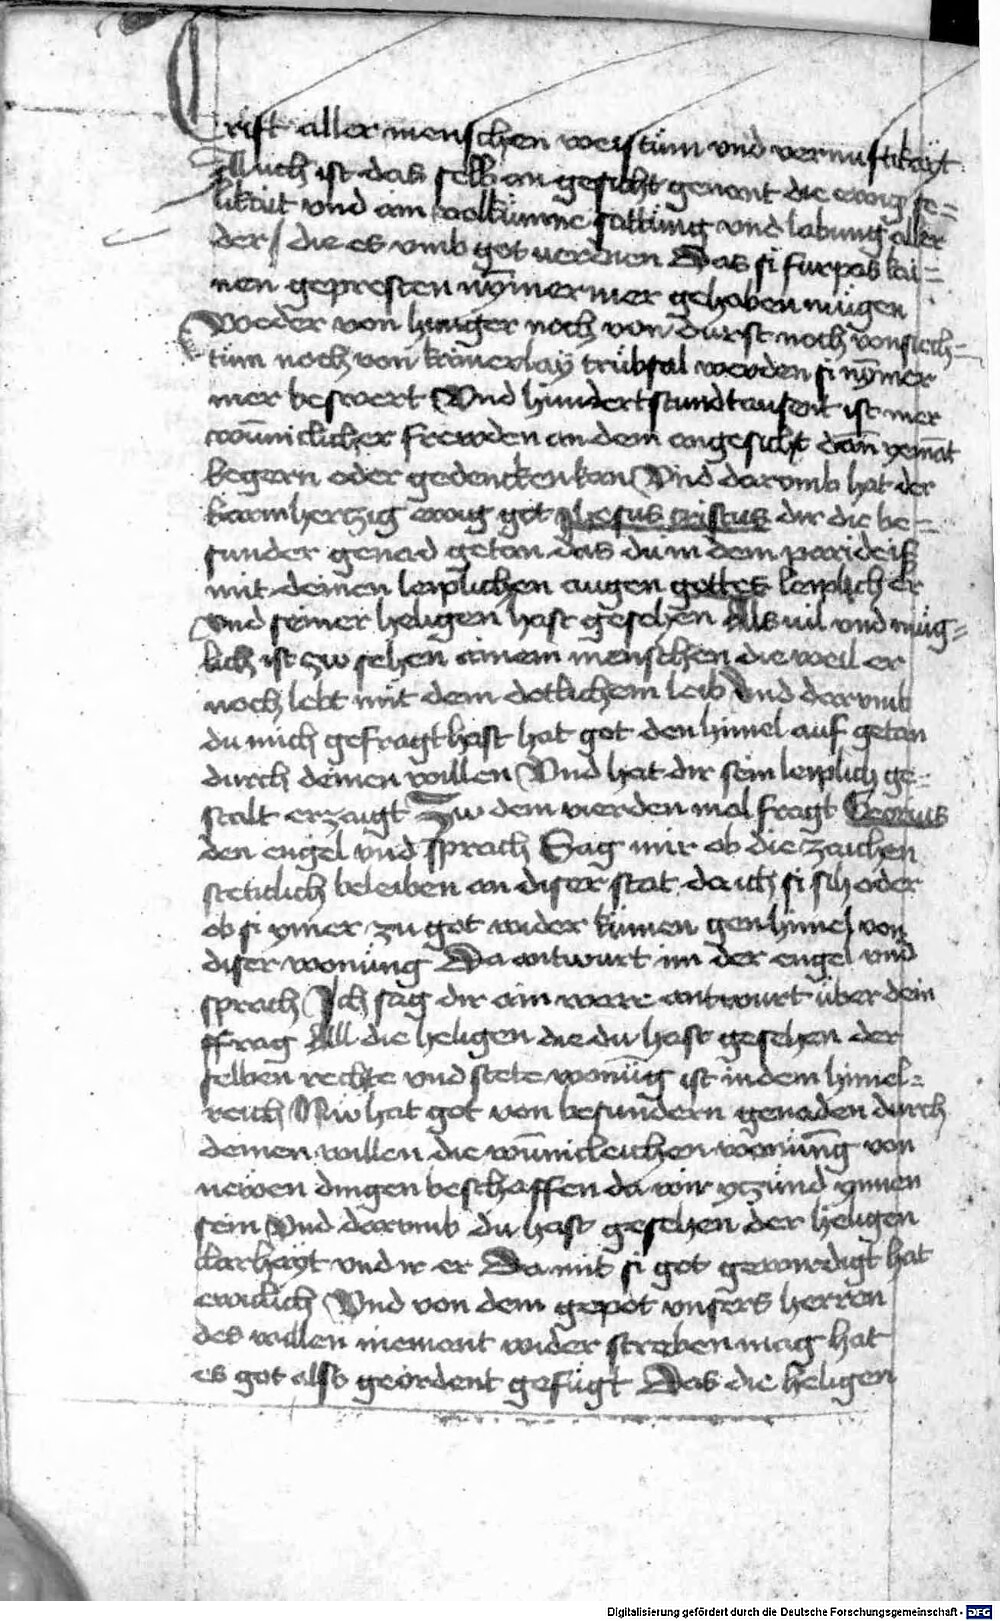 Trift aller menschen weistüm und vernuftikayt
Auch ist das selb an gesicht genant die ewig se=
likait vnd ain volkümne sattüng vnd labung aller
der / die es vmb got verdienen Das si furpas kai=
nen gepresten nÿmermer gehaben mügen
Weder von hunger noch von durst noch von siech=
tüm noch von kainerlaÿ trübsal werden si nÿmer
mer beswert Vnd hundertstund tausent ist mer
wünniclicher frewden an dem angesicht dañ yemãt
begern oder gedencken kan Vnd darvmb hat der
barmhertzig ewig got Jhesus cristus dir die be=
sunder genad getan das du in dem paradeiß
mit deinen leiplichen augen gottes leiplich er
vnd seiner heligen hast gesehen Als vil vnd müg=
lich ist zw sehen ainem menschen die weil er
noch lebt mit dem dotlichem leib Vnd darvmb
du mich gefragt hast hat got den himel auf getan
durch deinen willen Vnd hat dir sein leiplich ge=
stalt erzaigt Zw dem vierden mal fragt Georius
den engel vnd sprach Sag mir ob die zaichen
steticlich beleiben an diser stat da ich si sih oder
ob si ymer zu got wider kümen gen himel von
diser wonüng Da antwurt im der engel vnd
sprach Ich sag dir ain ware antwurt über dein
ffrag All die heligen die du hast gesehen der
selben rechte vnd stete wonũg ist in dem himel=
reich Nw hat got von besundern genaden durch
deinen willen die wünicleichen wonüng von
newen dingen beschaffen da wir yczund ynnen
sein Vnd darvmb du hast gesehen der heligen
klarhayt vnd ir er Da mit si got gewirdigt hat
ewiclich Vnd von dem gepot vnsers herren
des willen niemant wider streben mag hat
es got also geordent gefügt Das die heligen
Digitalisierung gefördert durch die Deutsche Forschungsgemeinschaft - DFG